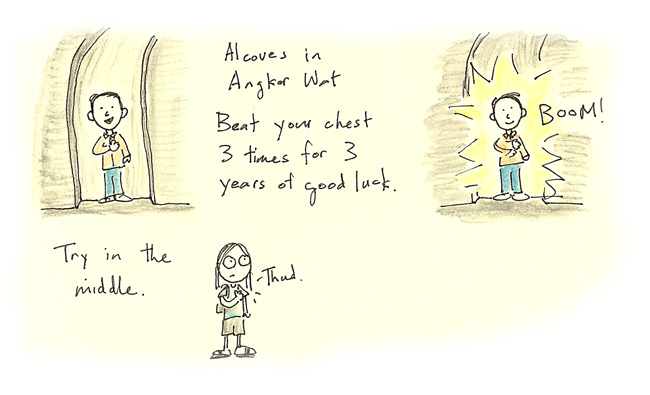 Alcoves in
Angkor Wat
Beat your chest
3 times for 3
years of good luck.
BOOM!
Try in the
middle.
Thud.